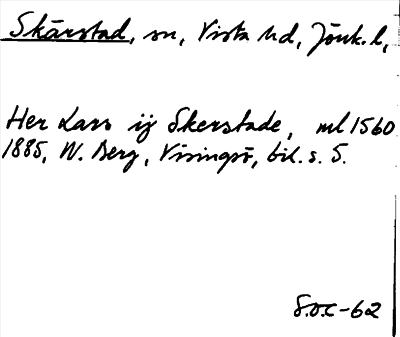 Skärstad, sn, Vista hd, Jönk. l,
Her Lars ij Skerstade, ml 1560
1885, W. Berg, Visingsö, bil. s. 5.
S.O.C-62